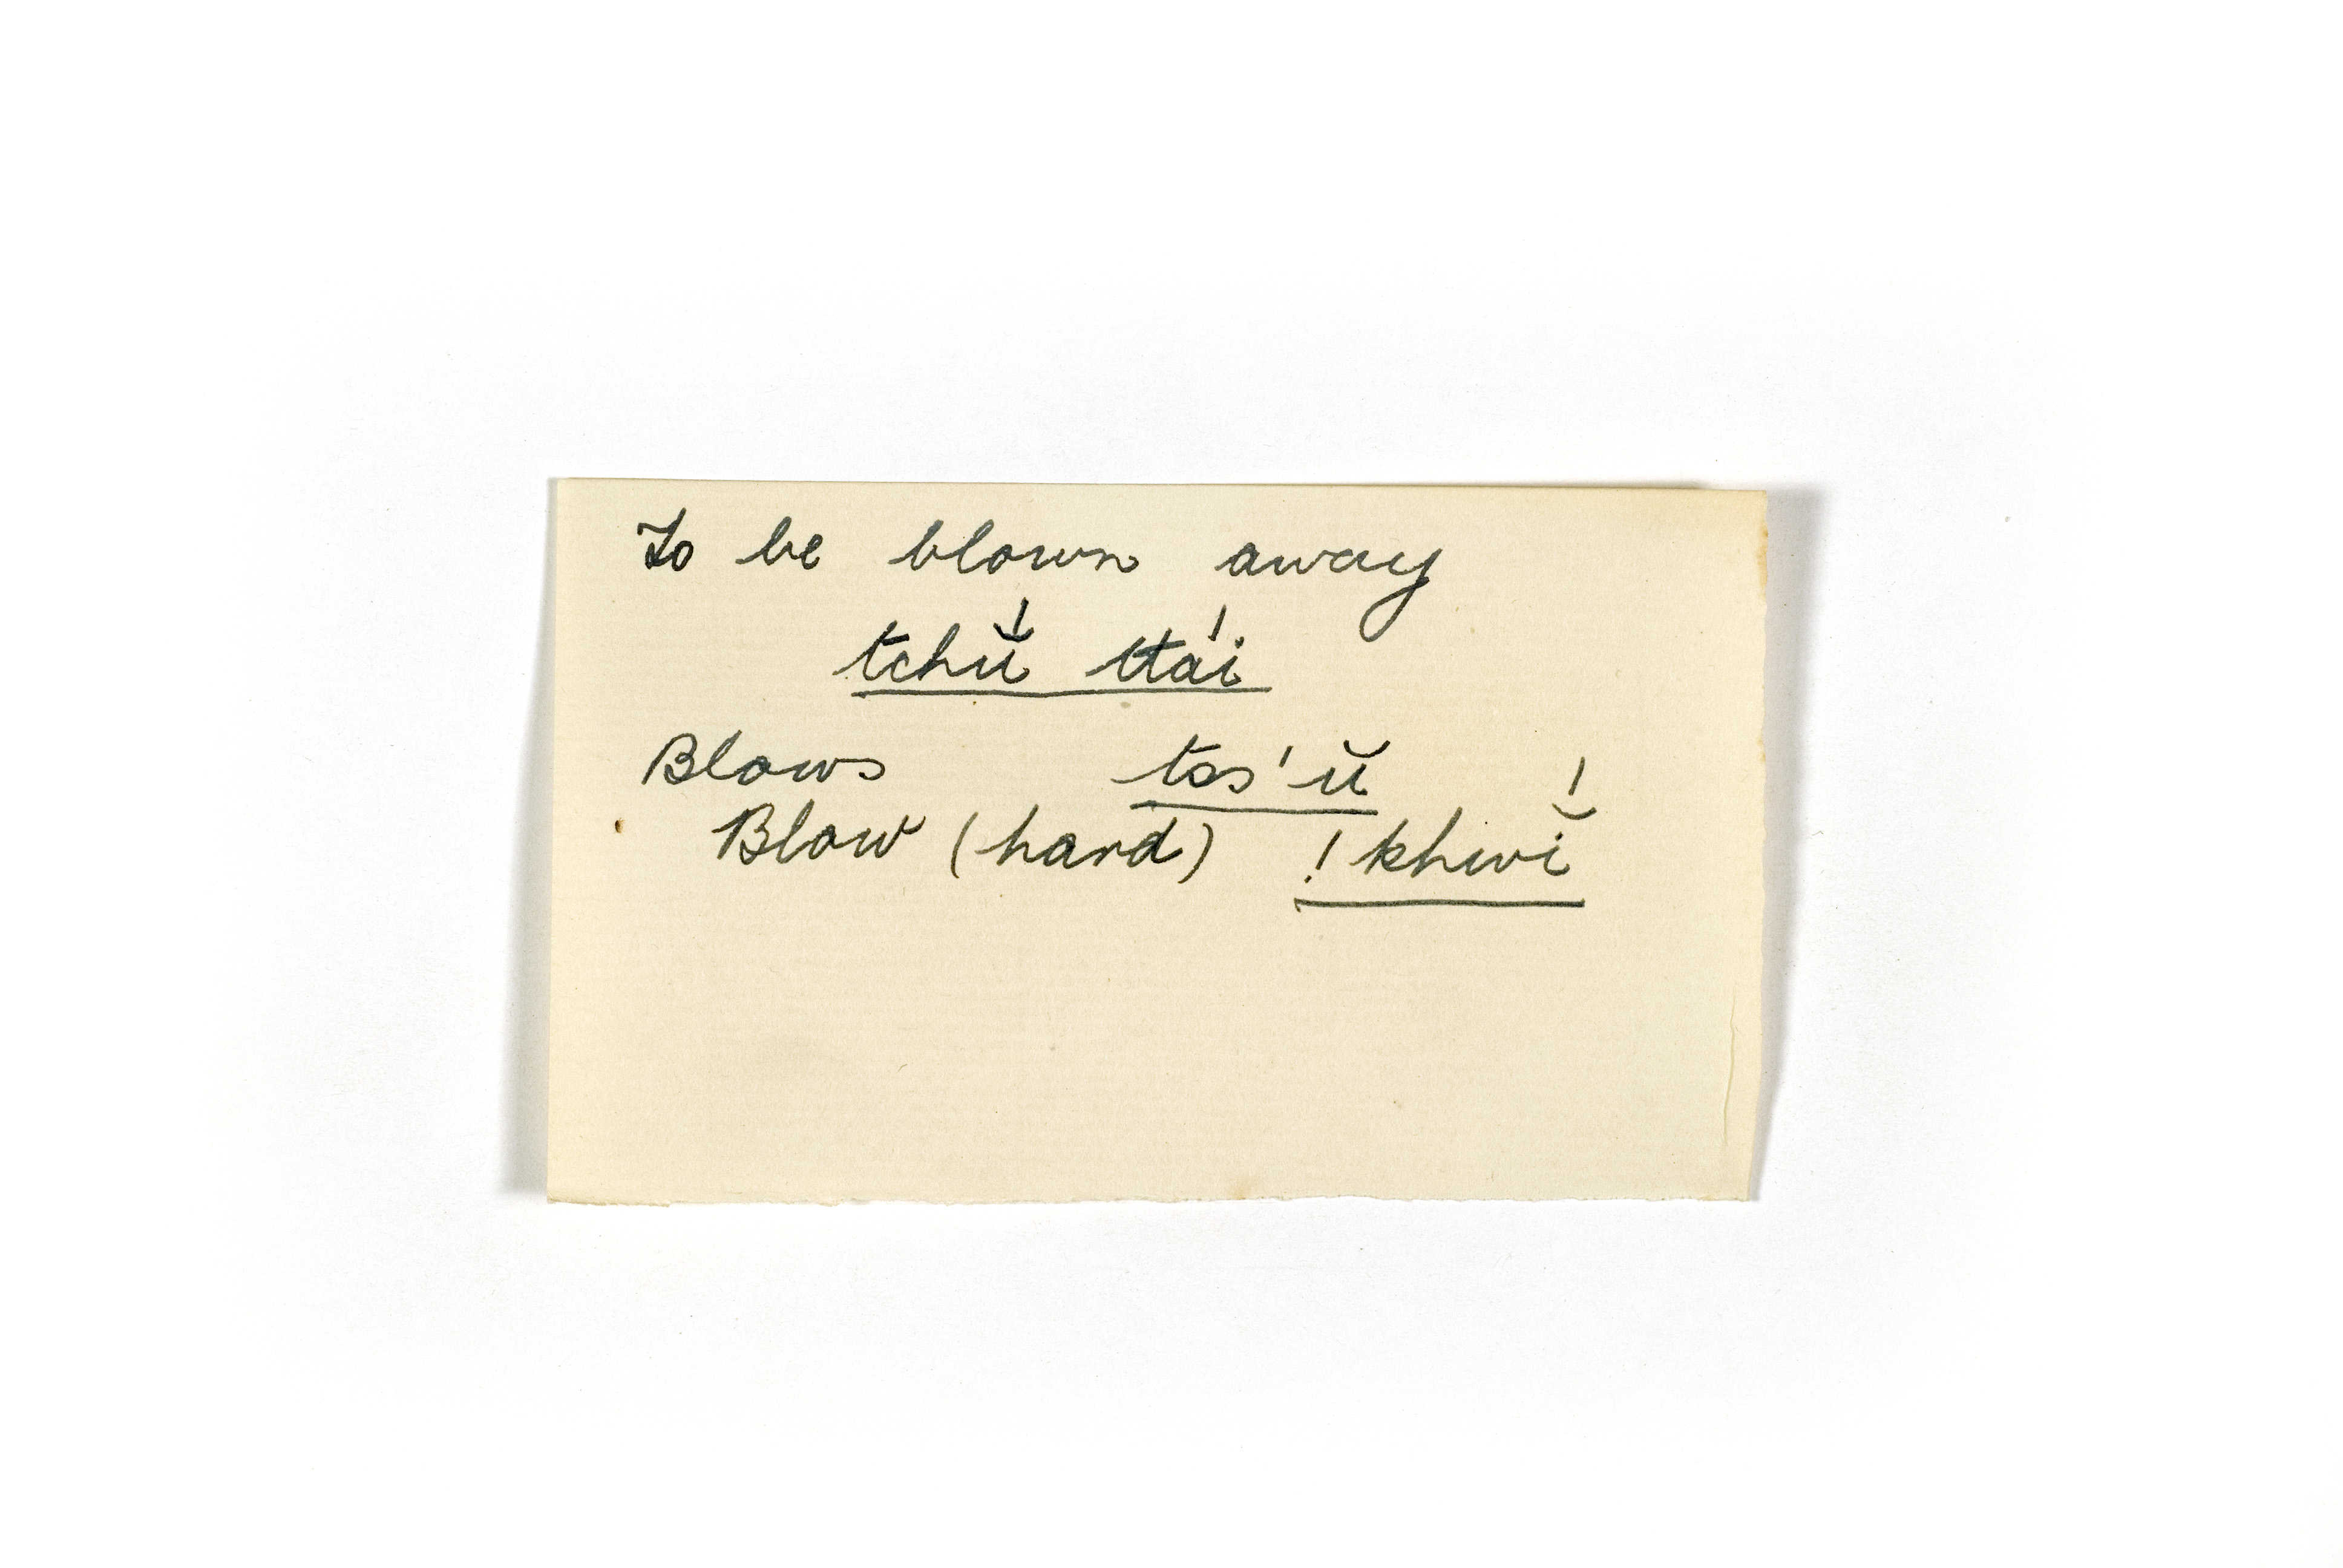 To be blown away
tchŭ́ ttái
Blows tss'ŭ
Blow (hard) !khwĭ́